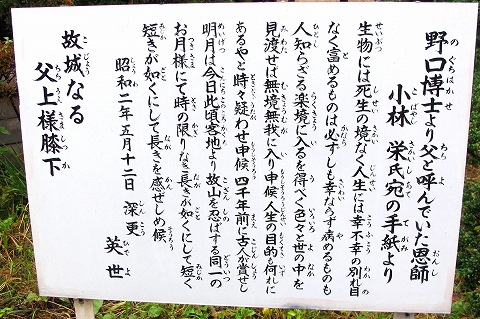 野口博士より父と呼んでいた恩師
小林 栄氏宛の手紙より
生物には死生の境なく人生には幸不幸の別れ目
なく富めるものは必ずしも幸ならず病めるものも
人知らざる楽境に入るを得べく色々と世の中を
見渡せば無境無我に入り申候 人生の目的も何れに
あるやと時々疑わせ申候 四千年前に古人が賞せし
明月は今日此頃客地より故山を忍ばする同一の
お月様にて時の限りなき長きが如くにして短く
短きが如くにして長きを感ぜしめ候
昭和二年五月十二日 深更 英世
故城なる
父上様膝下